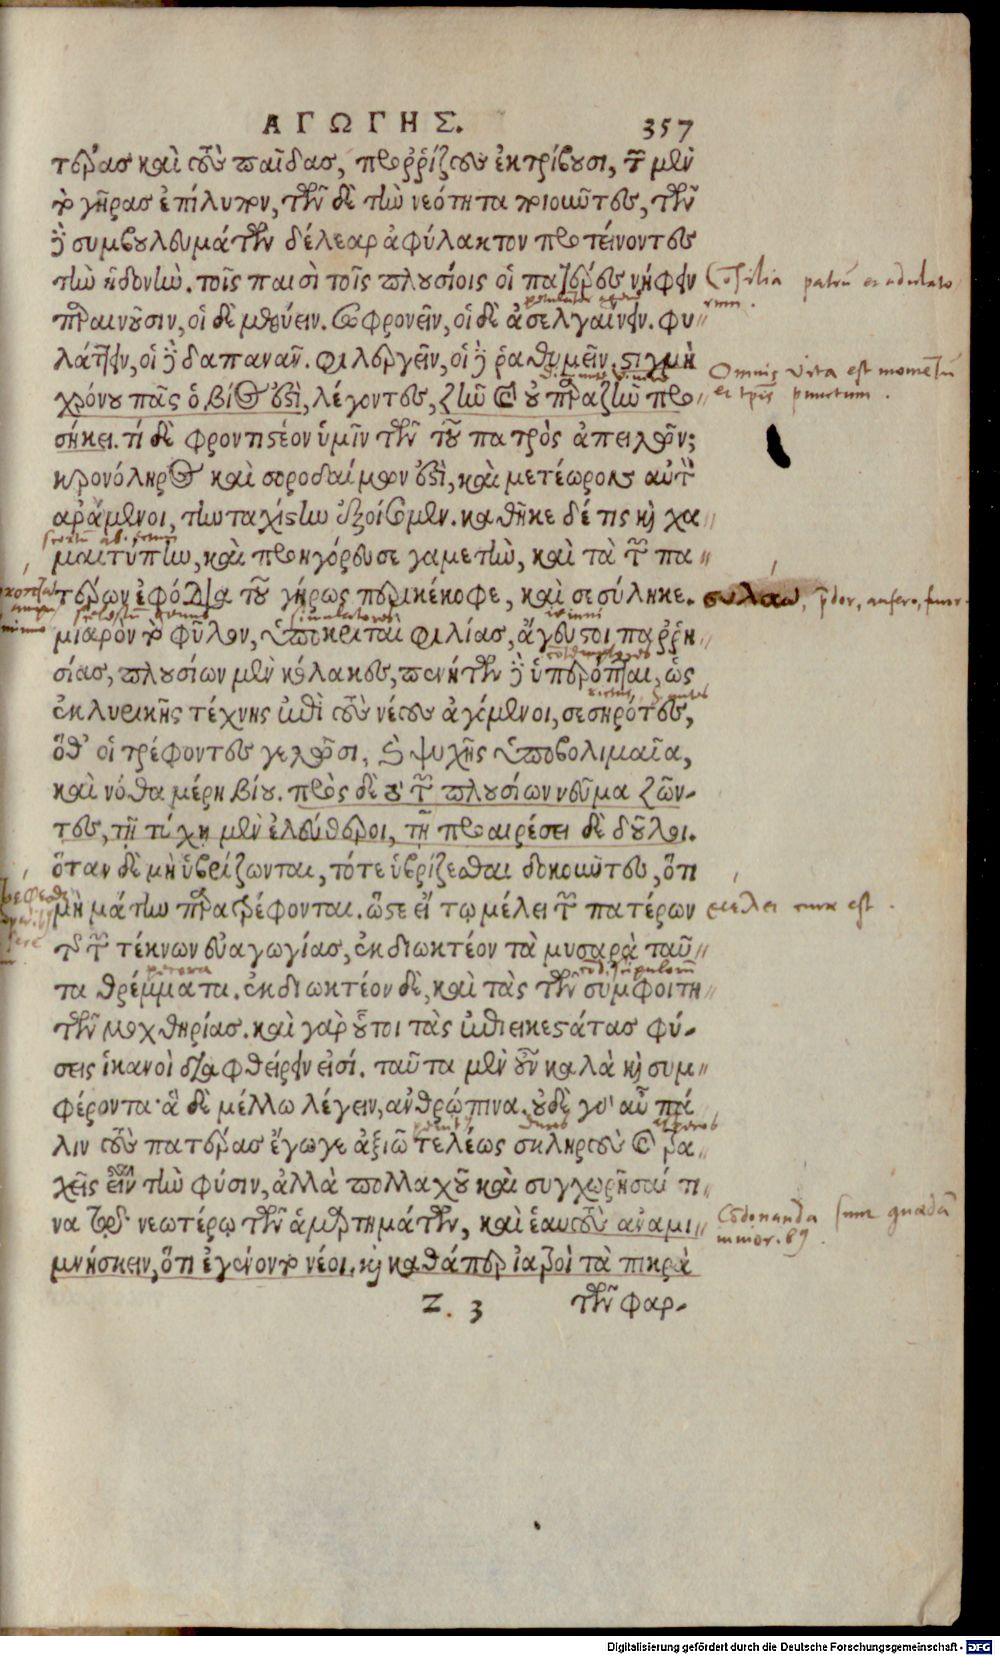 ΑΓΩΓΗΣ. 357
τέρας καὶ τοὺς παῖδας, προῤῥίζους ἐκτρίβουσι, τῶν μὲν
τὸ γῆρας ἐπίλυπον, τῶν δὲ τὴν νεότητα ποιοῦντες, τῶν
δὲ συμβουλευμάτων δέλεαρ ἀφύλακτον προτείνοντες
τὴν ἡδονήν. τοῖς παισὶ τοῖς πλουσίοις οἱ πατέρες νήφειν
παραινοῦσιν, οἱ δὲ μεθύειν. σωφρονεῖν, οἱ δὲ ἀσελγαίνειν. φυ-
λάττειν, οἱ δὲ δαπανᾶν. φιλεργεῖν, οἱ δὲ ῥαθυμεῖν. στιγμὴ
χρόνου πᾶς ὁ βίος ἐστὶ, λέγοντες, ζῆν καὶ οὐ παραζῆν προ-
σήκει. τί δὲ φροντιστέον ὑμῖν τῶν τοῦ πατρὸς ἀπειλῶν;
κρονόληρος καὶ σοροδαίμων ἐστὶ, καὶ μετέωρον αὐτὸν
ἀράμενοι, τὴν ταχίστην ἐξοίσωμεν. καθῆκε δέ τις καὶ χα-
μαιτύπην, καὶ προηγόρευσε γαμετὴν, καὶ τὰ τῶν πα-
τέρων ἐφόδια τοῦ γήρως περικέκοφε, καὶ σεσύληκε.
μιαρὸν τὸ φῦλον, ὑποκριταὶ φιλίας, ἄγευστοι παῤῥη-
σίας, πλουσίων μὲν κόλακες, πενήτων δὲ ὑπερόπται, ὡς
ἐκ λυρικῆς τέχνης ἐπὶ τοὺς νέους ἀγόμενοι, σεσηρότες,
ὅθ' οἱ τρέφοντες γελῶσι, καὶ ψυχῆς ὑποβολιμαῖα,
καὶ νόθα μέρη βίου. πρὸς δὲ τὸ τῶν πλουσίων νεῦμα ζῶν-
τες, τῇ τύχῃ μὲν ἐλεύθεροι, τῇ προαιρέσει δὲ δοῦλοι.
ὅταν δὲ μὴ ὑβρίζωνται, τότε ὑβρίζεσθαι δοκοῦντες, ὅτι
μὴ μάτην παρατρέφονται. ὥστε εἴ τῳ μέλει τῶν πατέρων
τῆς τῶν τέκνων εὐαγωγίας, ἐκδιωκτέον τὰ μυσαρὰ ταῦ-
τα θρέμματα. ἐκδιωκτέον δὲ, καὶ τὰς τῶν συμφοιτη-
τῶν μοχθηρίας. καὶ γὰρ οὗτοι τὰς ἐπιεικεστάτας φύ-
σεις ἱκανοὶ διαφθείρειν εἰσί. ταῦτα μὲν οὖν καλὰ καὶ συμ-
φέροντα· ἃ δὲ μέλλω λέγειν, ἀνθρώπινα. οὐδὲ γὰρ αὖ πά-
λιν τοὺς πατέρας ἔγωγε ἀξιῶ τελέως σκληροὺς καὶ τρα-
χεῖς εἶναι τὴν φύσιν, ἀλλὰ πολλαχοῦ καὶ συγχωρῆσαί τι-
να τῷ νεωτέρῳ τῶν ἁμαρτημάτων, καὶ ἑαυτοὺς ἀναμι-
μνήσκειν, ὅτι ἐγένοντο νέοι. καὶ καθάπερ ἰατροὶ τὰ πικρὰ
Z. 3 τῶν φαρ-
Cōsilia patrū et adulato
rum.
Omnis vita est momētū
et tp̄is punctum.
συλαω, p̄dor, aufero, furor.
μελει cura est.
Cōdonanda sunt quædā
Digitalisierung gefördert durch die Deutsche Forschungsgemeinschaft - DFG